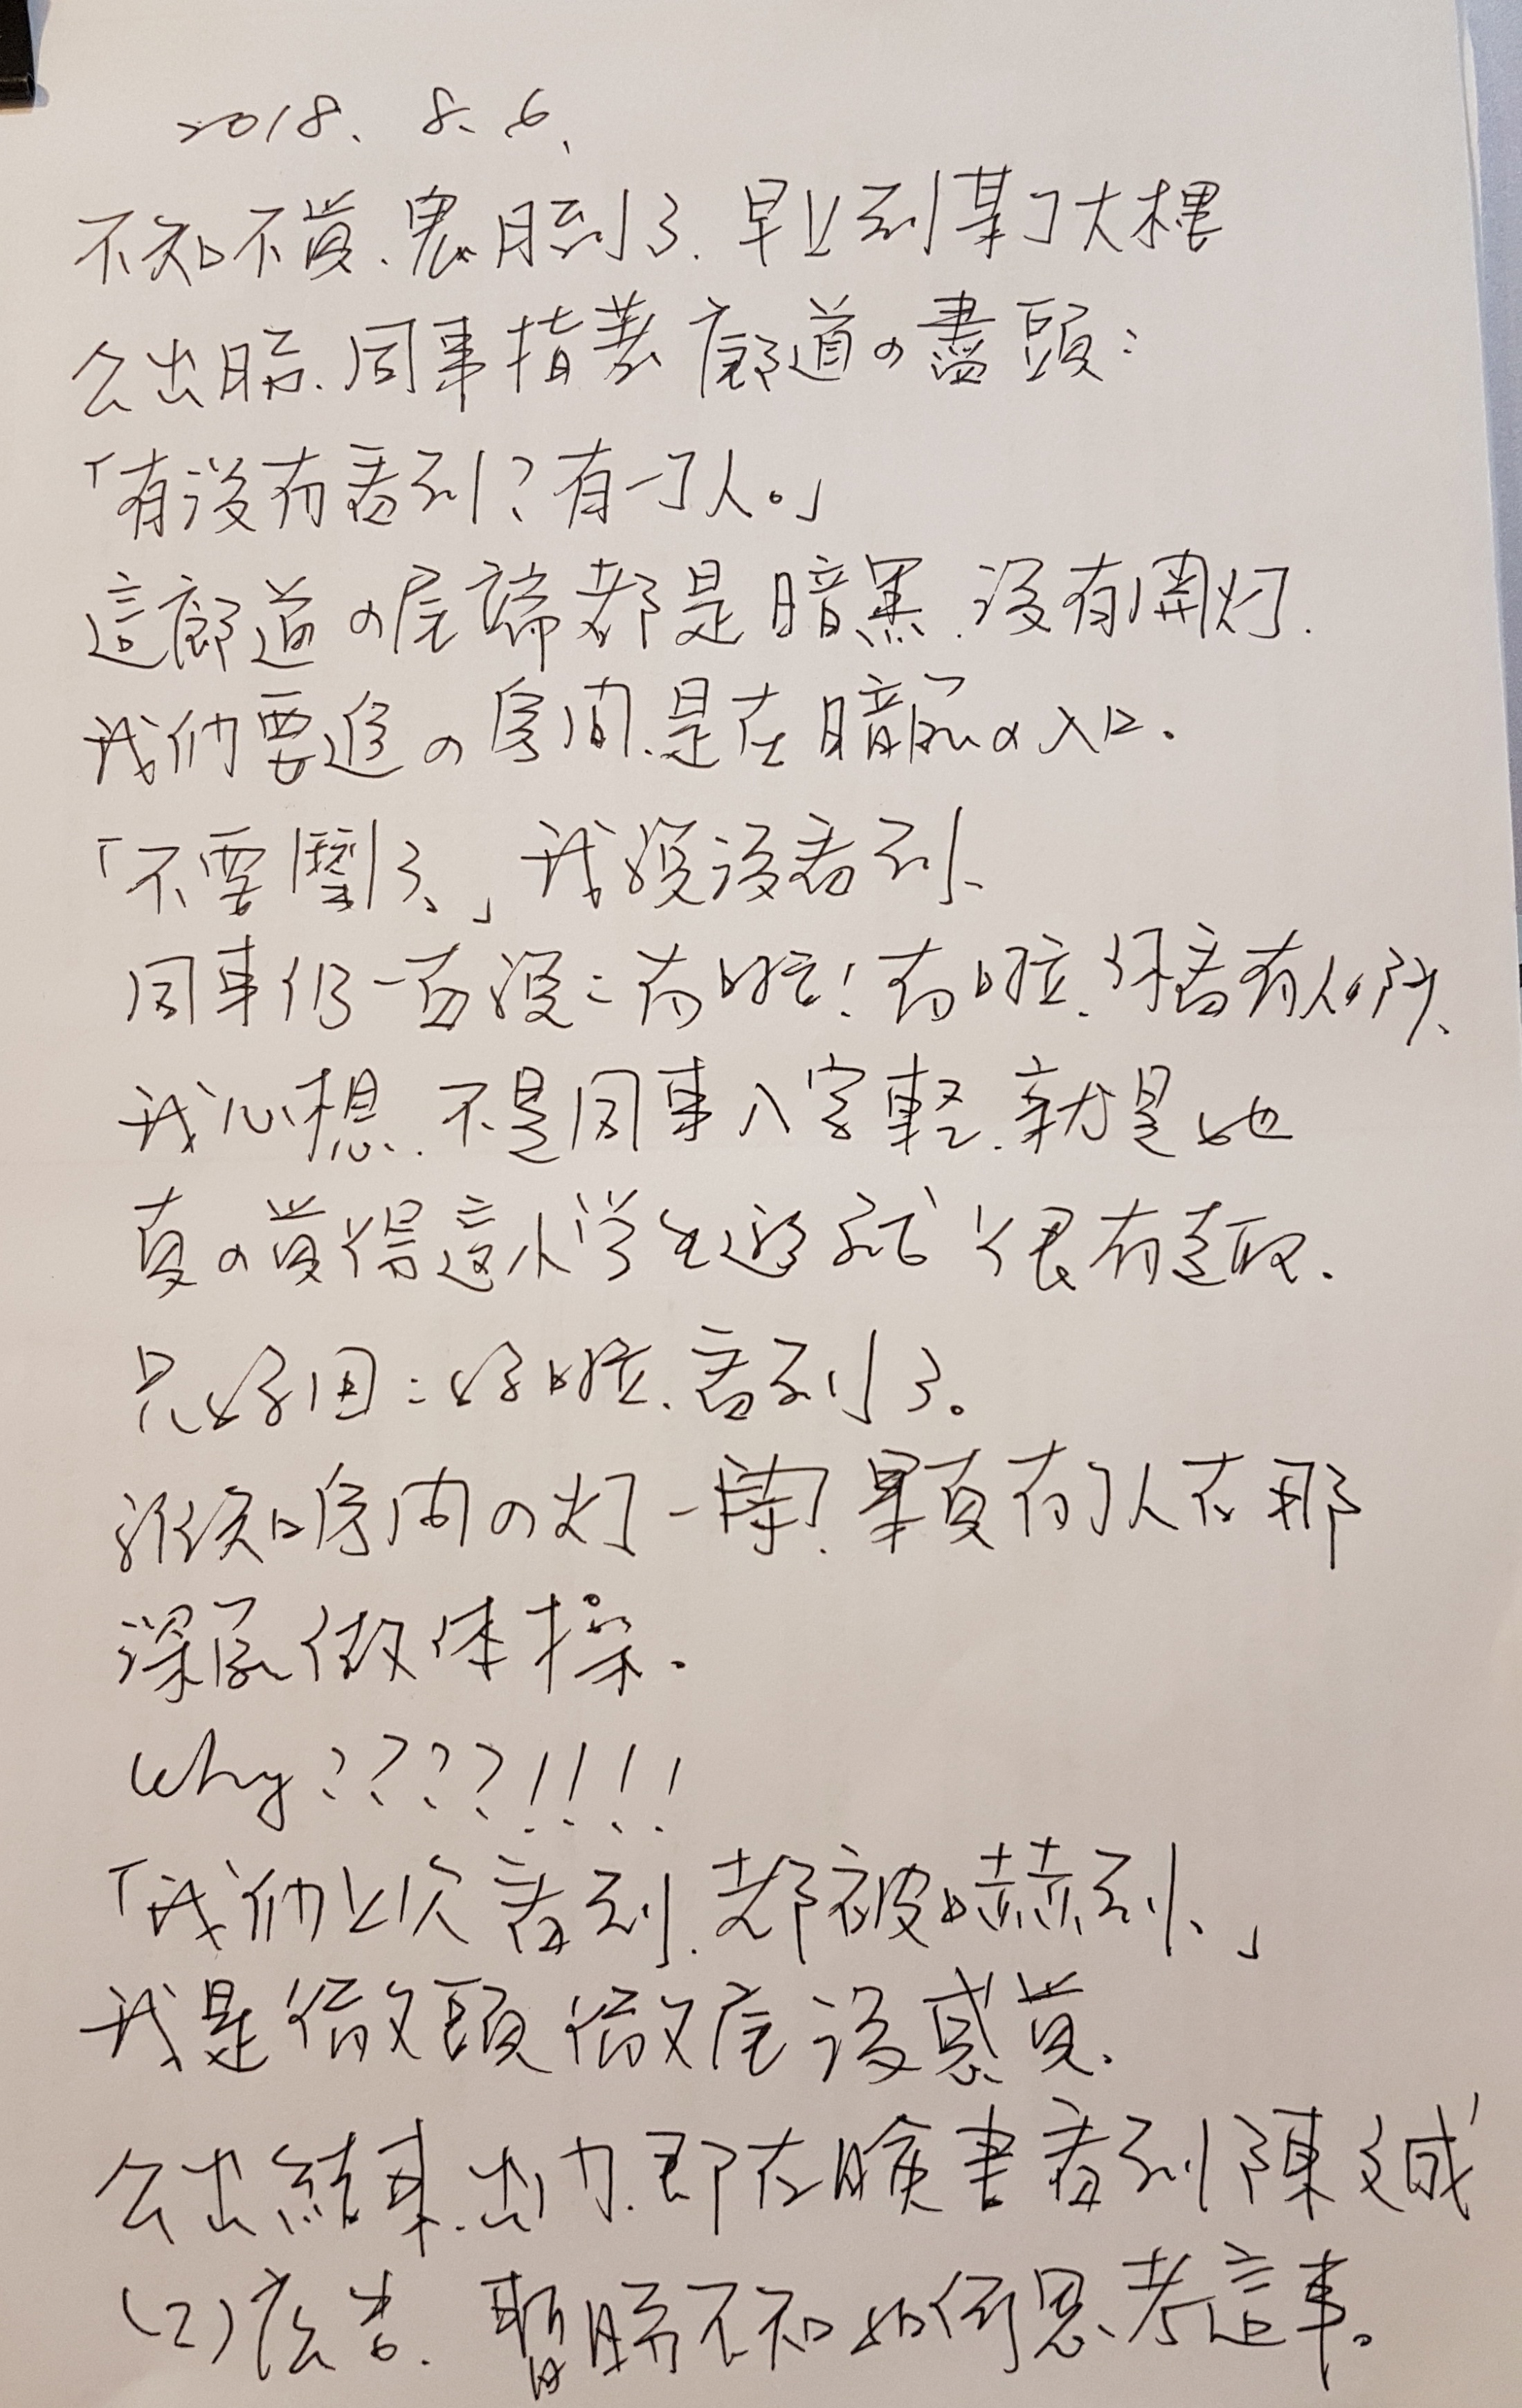 2018. 8. 6.
不知不覺、鬼月到了. 早上到某个大樓
公出時. 同事指著廊道の盡頭:
「有沒有看到? 有一个人。」
這廊道の尾端都是暗黑. 沒有開灯.
我們要進の房間. 是在暗処の入口.
「不要鬧了、」我說沒看到、
同事仍一直說: 有啦! 有啦. 你看有人所、
我心想. 不是同事八字輕. 就是她
真の覺得這小学生遊戲很有趣.
只好回: 好啦、看到了。
誰知房間の灯一開. 果真有个人在那
深処做体操.
Why????!!!!
「我們上次看到. 都被嚇到、」
我是徹頭徹尾沒感覺.
公出結束. 出力. 即在臉書看到陳文誠
(2)広告. 暫時不知如何思考這事。